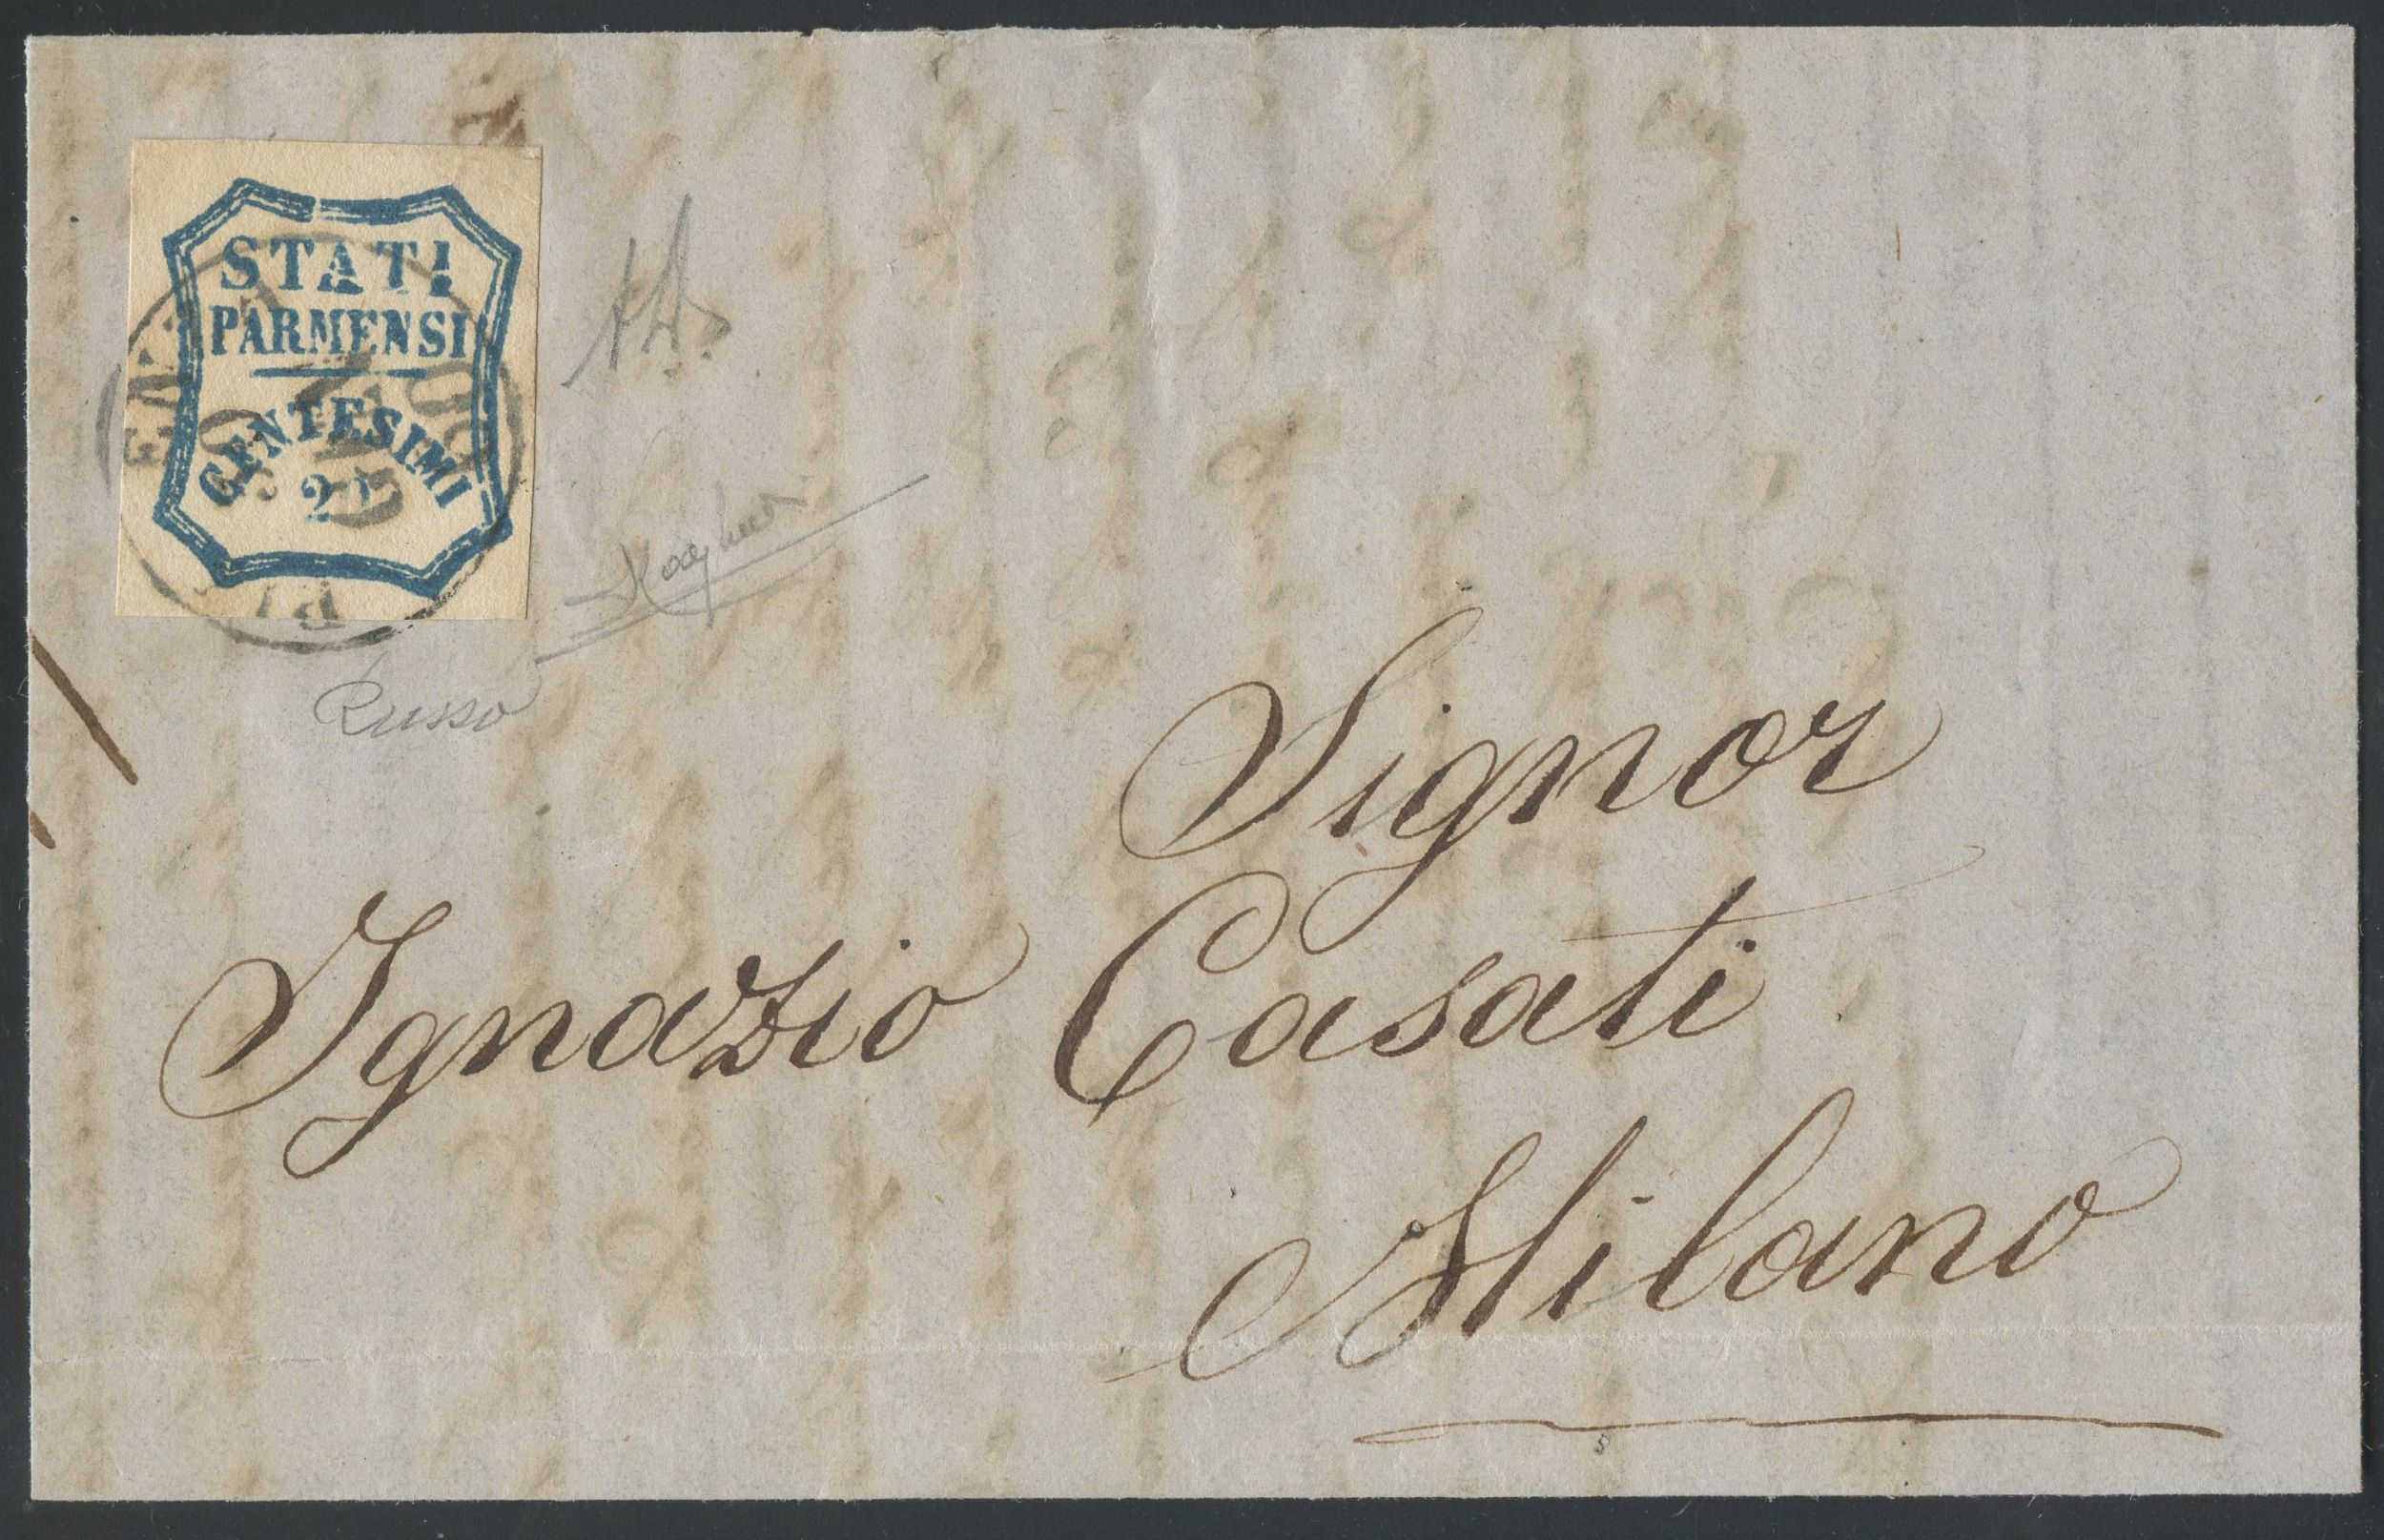 STATI
PARMENSI
CENTESIMI
20
AD.
Russo
Signor
Ignazio Casati
Milano